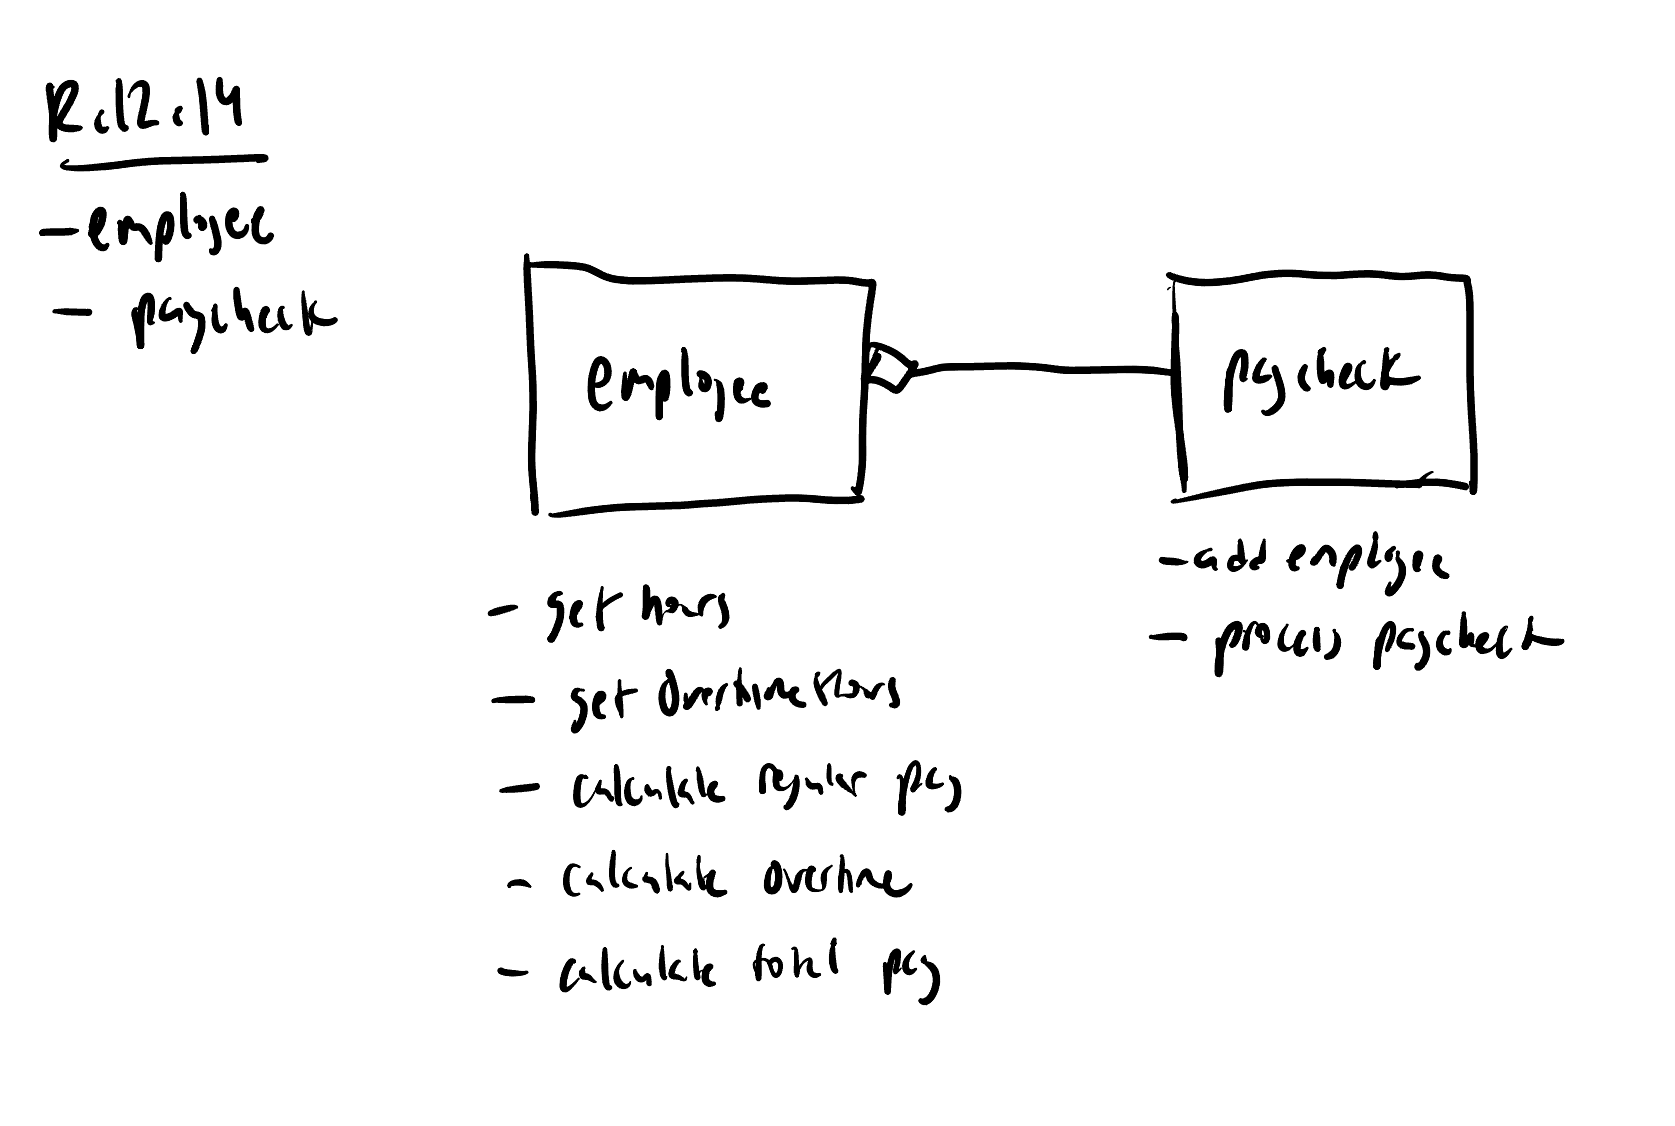 R.12.14
- employee
- paycheck
employee
paycheck
- get hours
- get OvertimeHours
- calculate regular pay
- calculate overtime
- calculate total pay
- add employee
- process paycheck